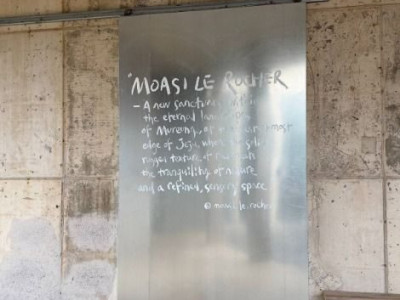 "MOASI LE ROCHER
– A new sanctuary
the eternal
of Mureung, at
edge of Jeju, where
rugged texture of
the tranquility of nature
and a refined, sensory space
@moasi.le.rocher